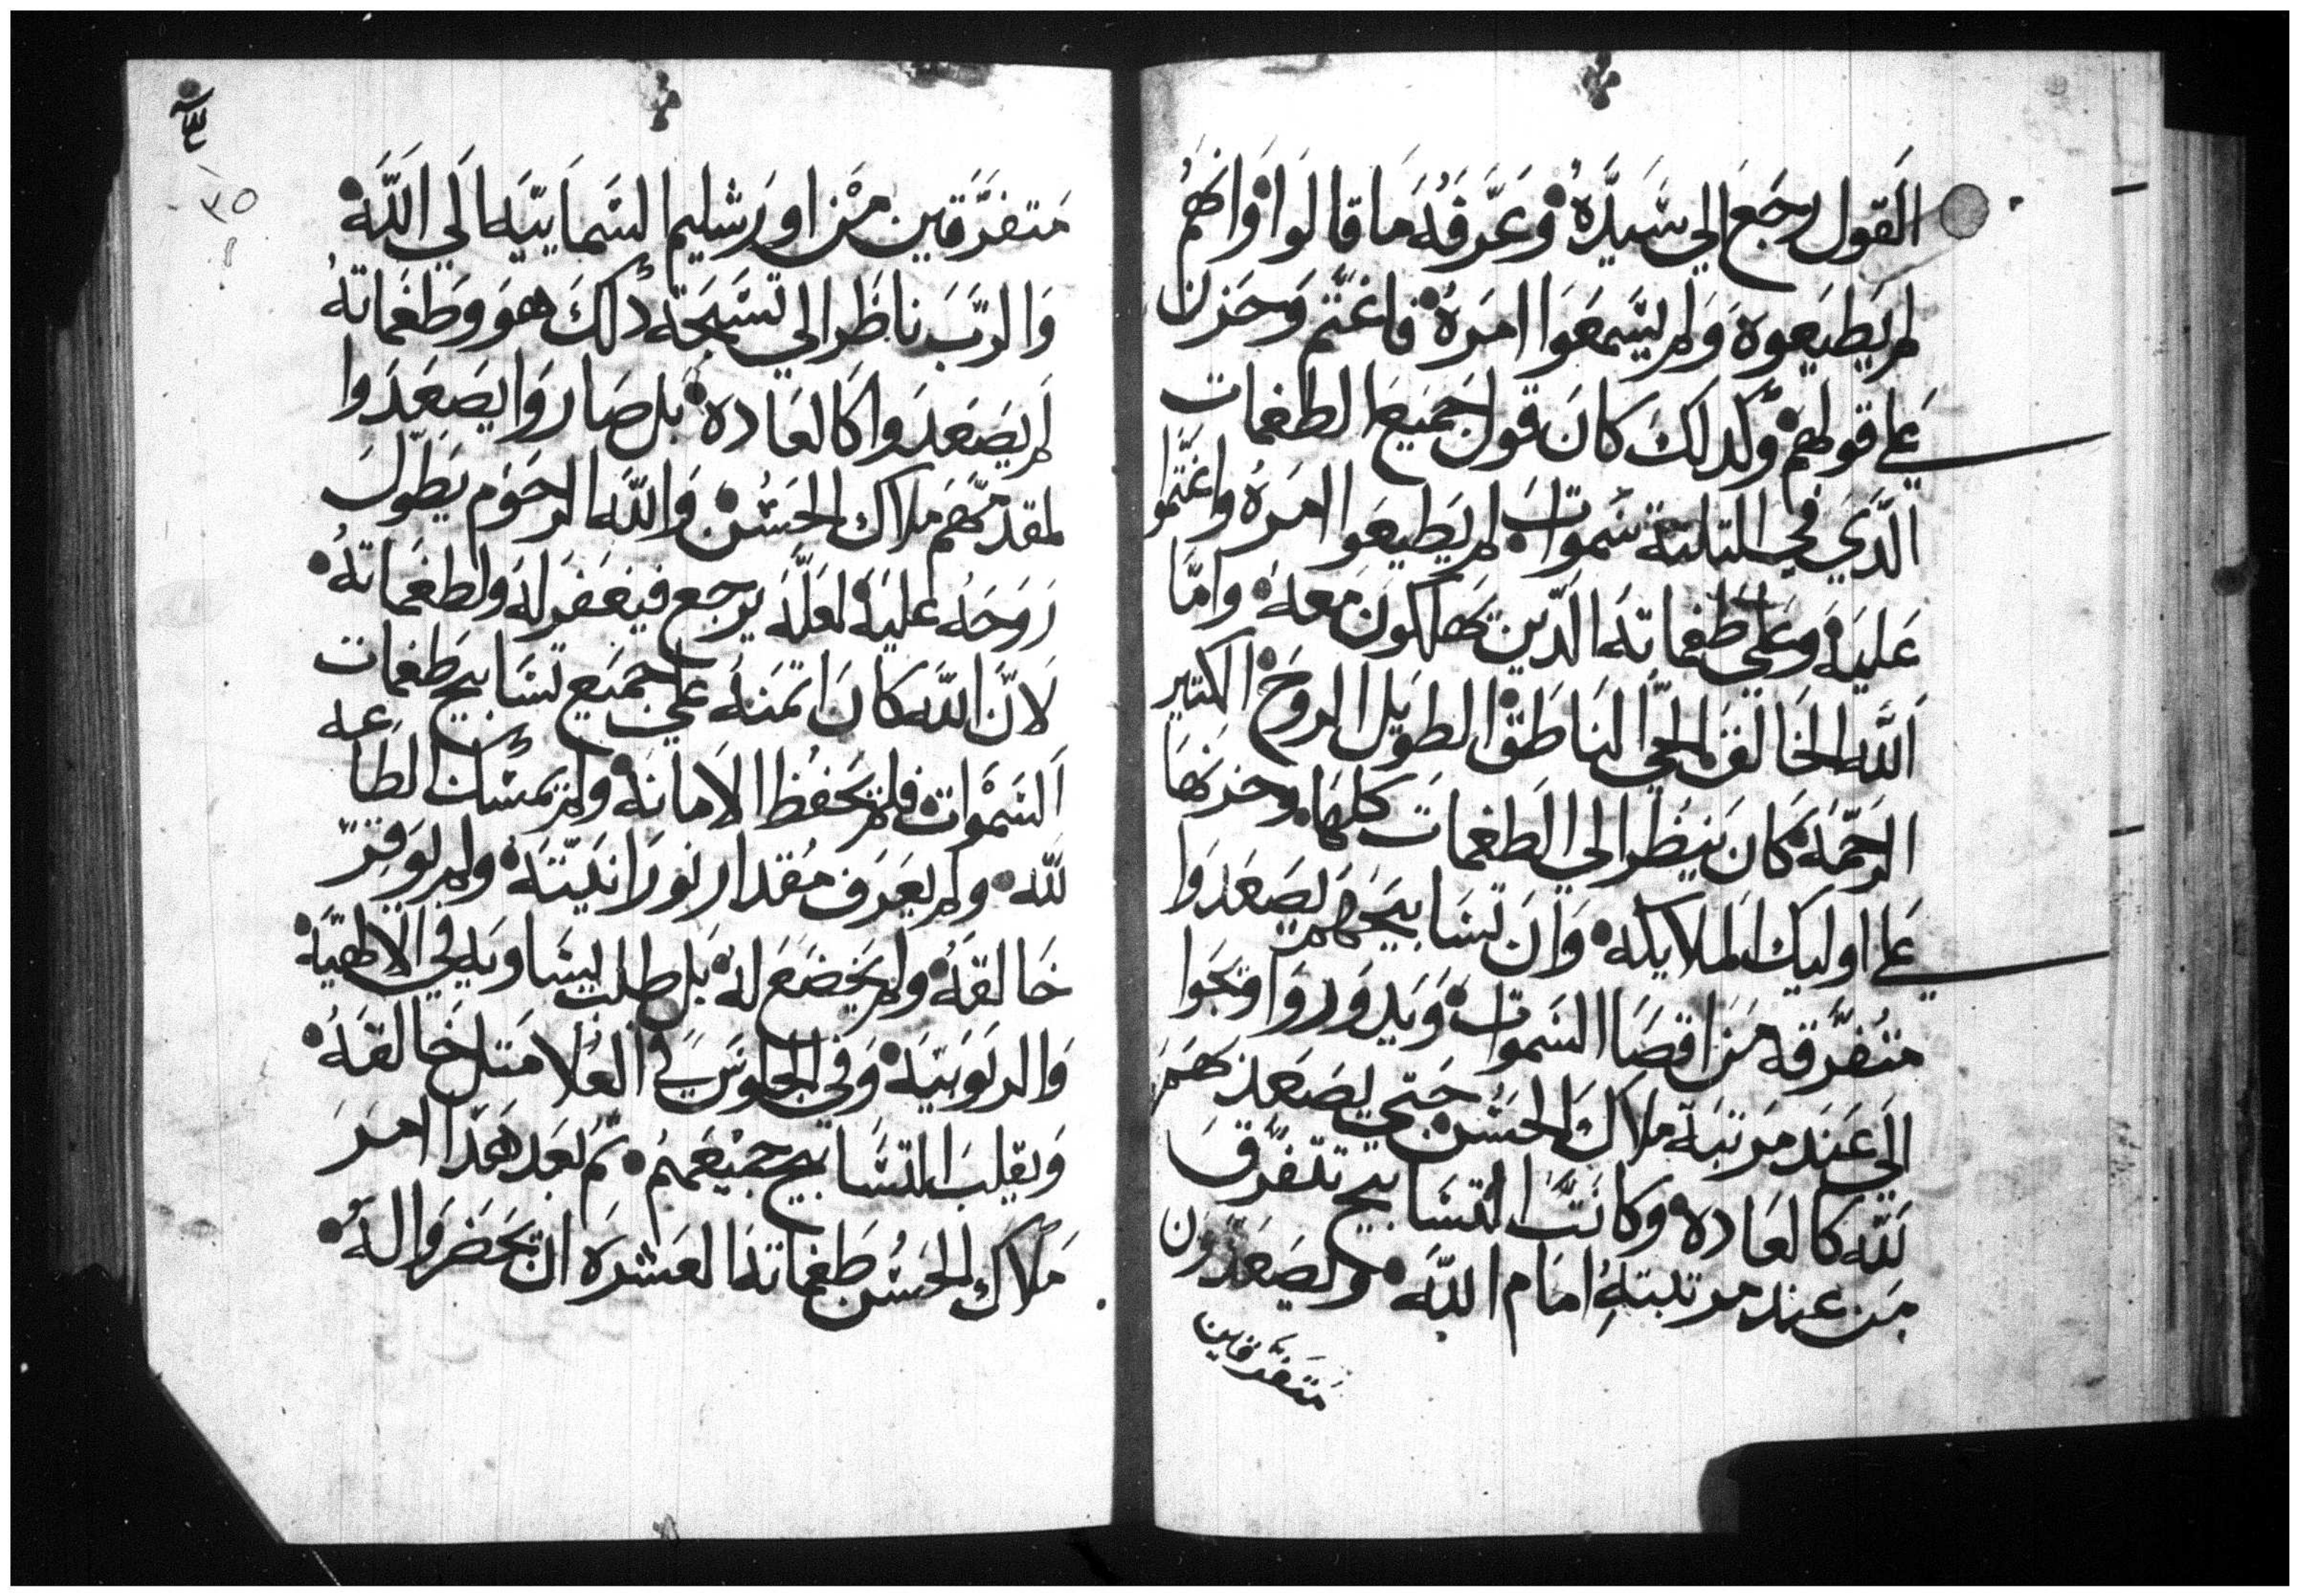 القول رجع الي سيده وعرفه ما قالوا وانهم
لم يطيعوه ولم يسمعوا امره فاغتم وحزن
علي قولهم وكدلك كان قول جميع الطغمات
الدي في التلتة سموات لم يطيعوا امره واغتموا
عليه وعلي طغماته الدين يهلكون معه واما
الله الخالق الحي الناطق الطويل الروح الكتير
الرحمه كان ينظر الي الطغمات كلها وحزنها
علي اوليك الملايكه وان تسابيحهم يصعدوا
متفرقه من اقصا السموات ويدوروا ويجوا
الي عند مرتبة ملاك الحسن حتي يصعد بهم
لله كالعاده وكانت التسابيح تتفرق
من عند مرتبته امام الله ويصعدون
متفرقين
متفرقين من اورشليم السماييه الي الله
والرب ناظر الي تسبحة دلك هو وطغماته
لم يصعدوا كالعاده بل صاروا يصعدوا
لمقدمهم ملاك الحسن والله الرحوم يطول
روحه عليه لعله يرجع فيغفر له ولطغماته
لان الله كان اتمنه علي جميع تسابيح طغمات
السموات فلم يحفظ الامانه ولم يمسك الطاعه
لله ولم يعرف مقدار نورانيته ولم يوقر
خالقه ولم يخضع له بل طلب يساويه في الالهيه
والربوبيه وفي الجلوس في العلا متل خالقه
ويقلب التسابيح جميعهم تم بعد هدا امر
ملاك الحسن طغماته العشره ان يحضروا له